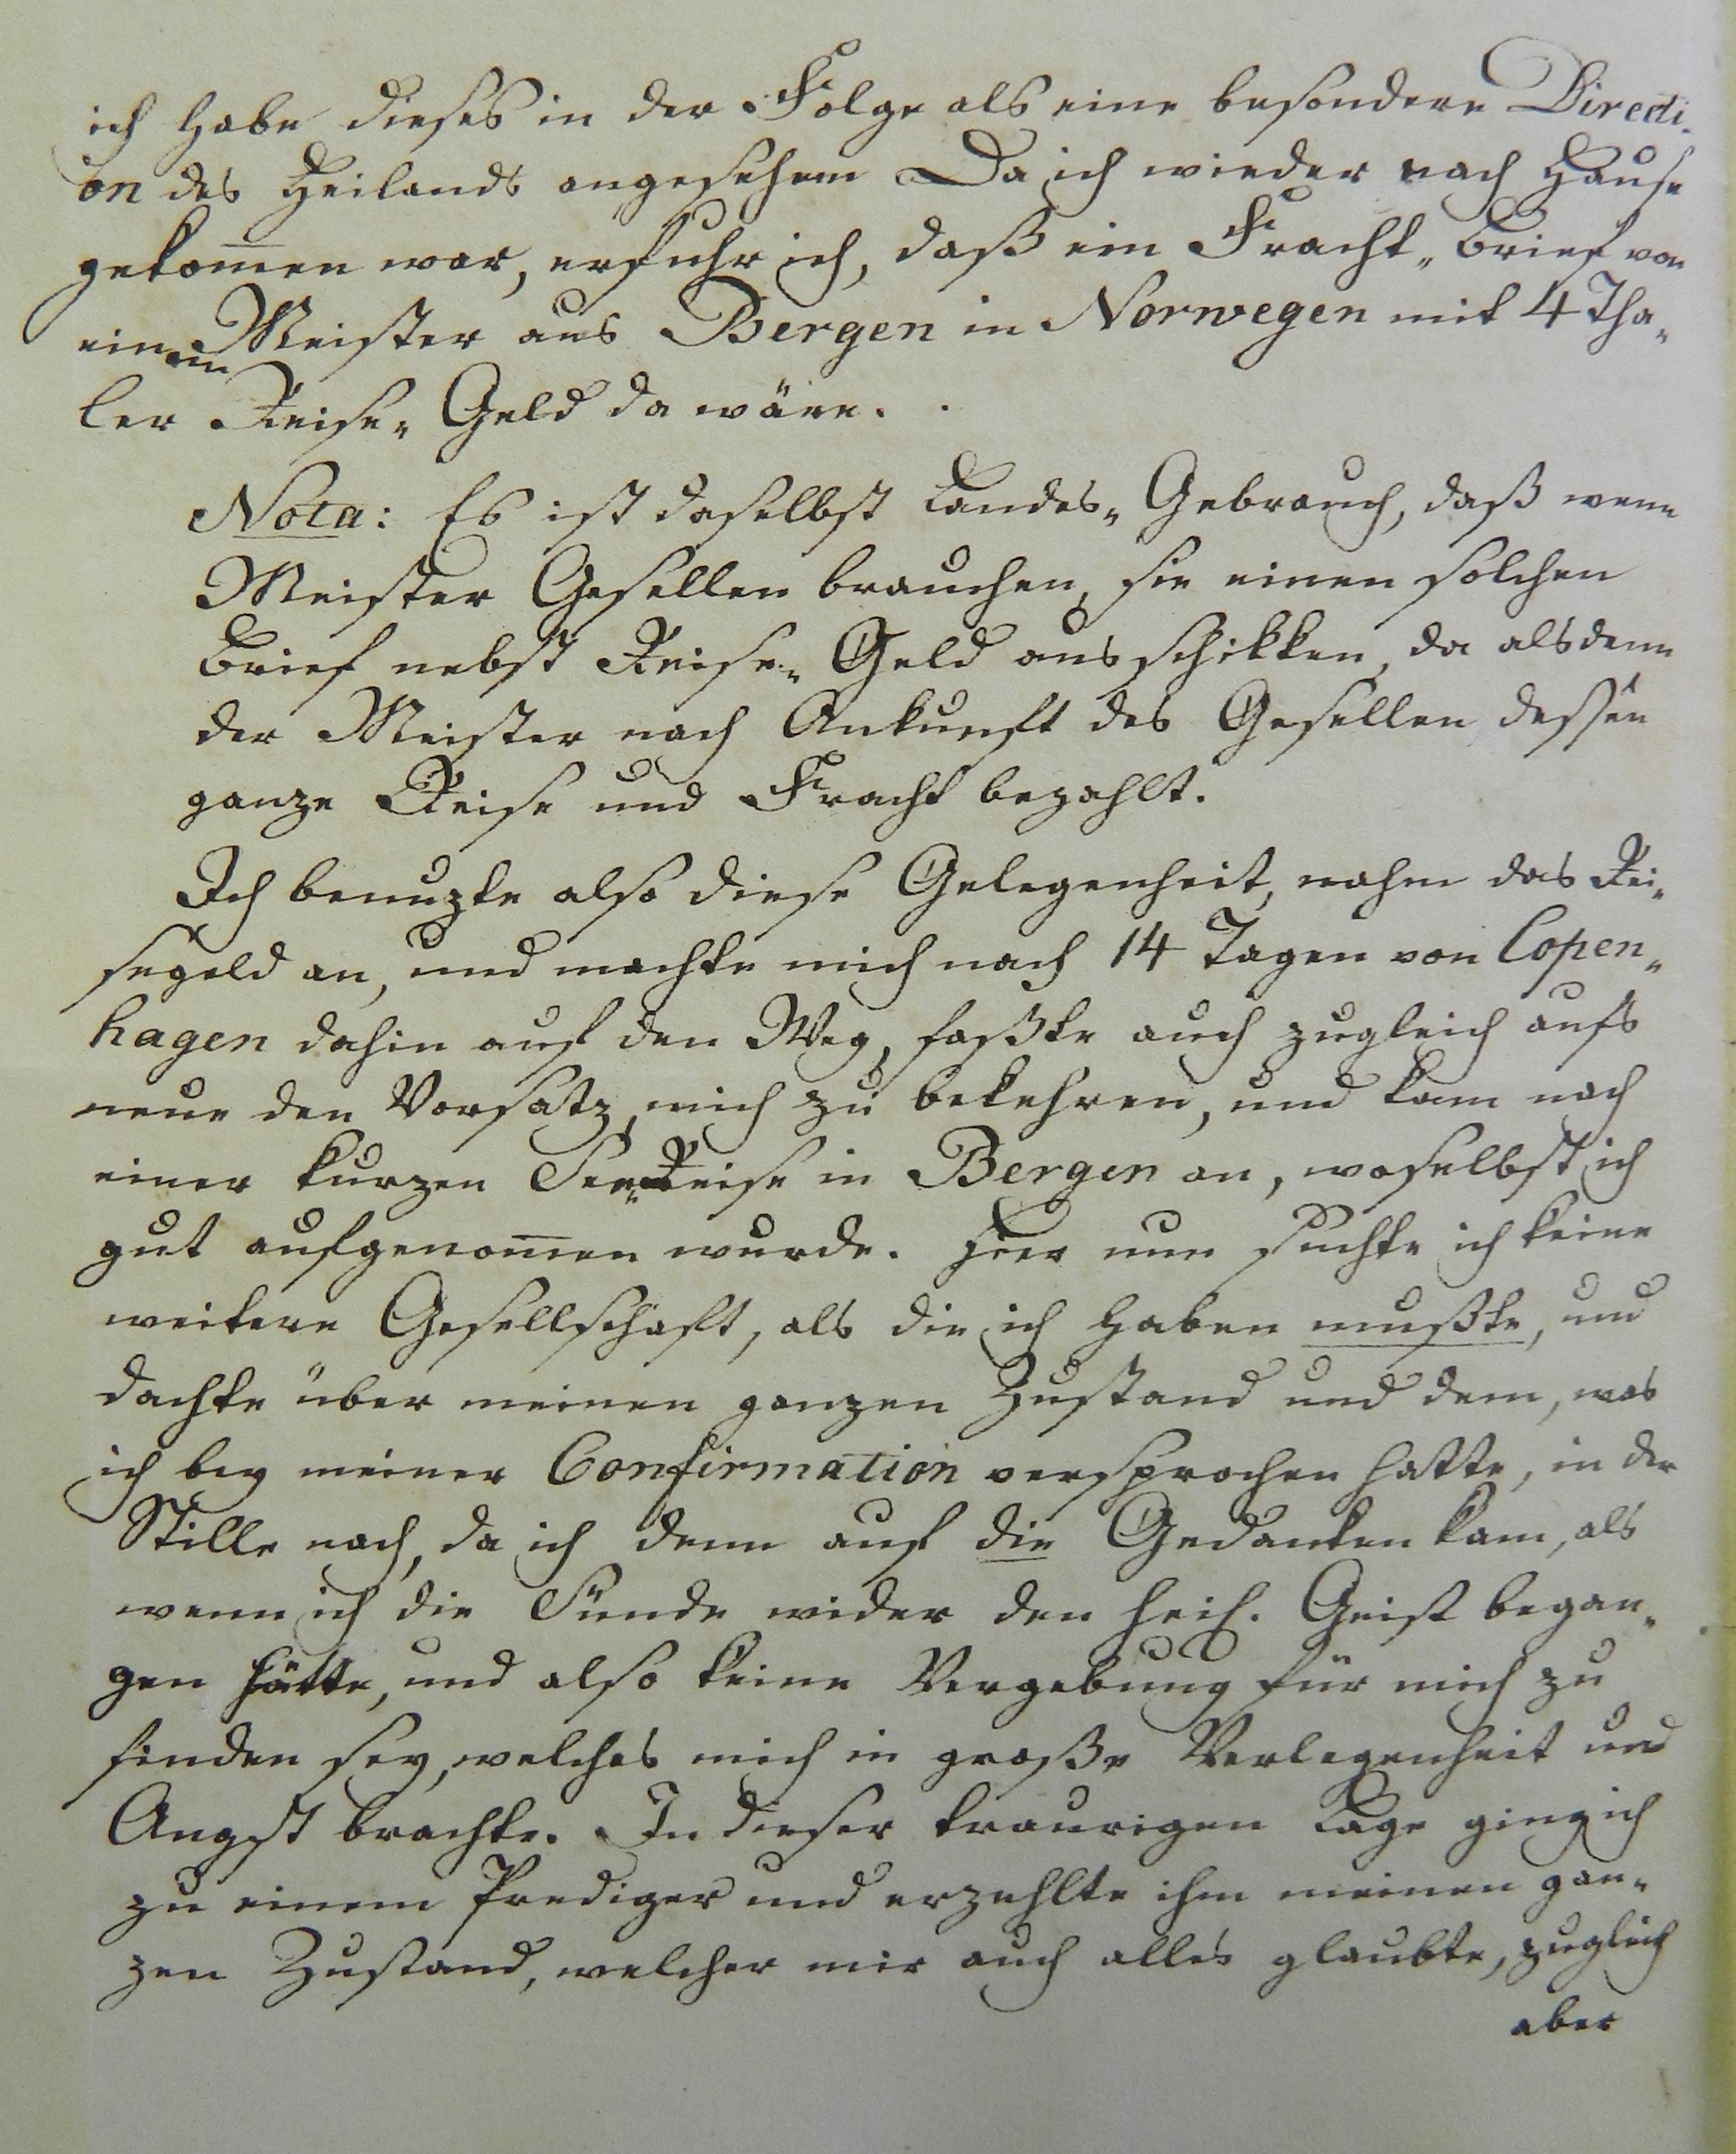 ich habe dieses in der Folge als eine besondere Directi-
on des Heilands angesehen Da ich wieder nach Hause
gekom̅en war, erfuhr ich, daß ein Fracht-Brief von
einem Meister aus Bergen in Norwegen mit 4 Tha-
ler Reise-Geld da wäre.
Nota: Es ist daselbst Landes-Gebrauch, daß wenn
Meister Gesellen brauchen, sie einen solchen
Brief nebst Reise-Geld ausschikken, da alsdenn
der Meister nach Ankunft des Gesellen dessen
ganze Reise und Fracht bezahlt.
Ich benuzte also diese Gelegenheit, nahm das Rei-
segeld an, und machte mich nach 14 Tagen von Copen-
hagen dahin auf den Weg, faßte auch zugleich aufs
neue den Vorsatz, mich zu bekehren, und kam nach
einer kurzen See-Reise in Bergen an, woselbst ich
gut aufgenom̅en wurde. Hier nun suchte ich keine
weitere Gesellschaft, als die ich haben mußte, und
dachte über meinen ganzen Zustand und dem, was
ich bey meiner Confirmation versprochen hatte, in der
Stille nach, da ich denn auf die Gedanken kam, als
wenn ich die Sünde wider den heil. Geist began-
gen hätte, und also keine Vergebung für mich zu
finden sey, welches mich in große Verlegenheit und
Angst brachte. In dieser traurigen Lage ging ich
zu einem Prediger und erzehlte ihm meinen gan-
zen Zustand, welcher mir auch alles glaubte, zugleich
aber